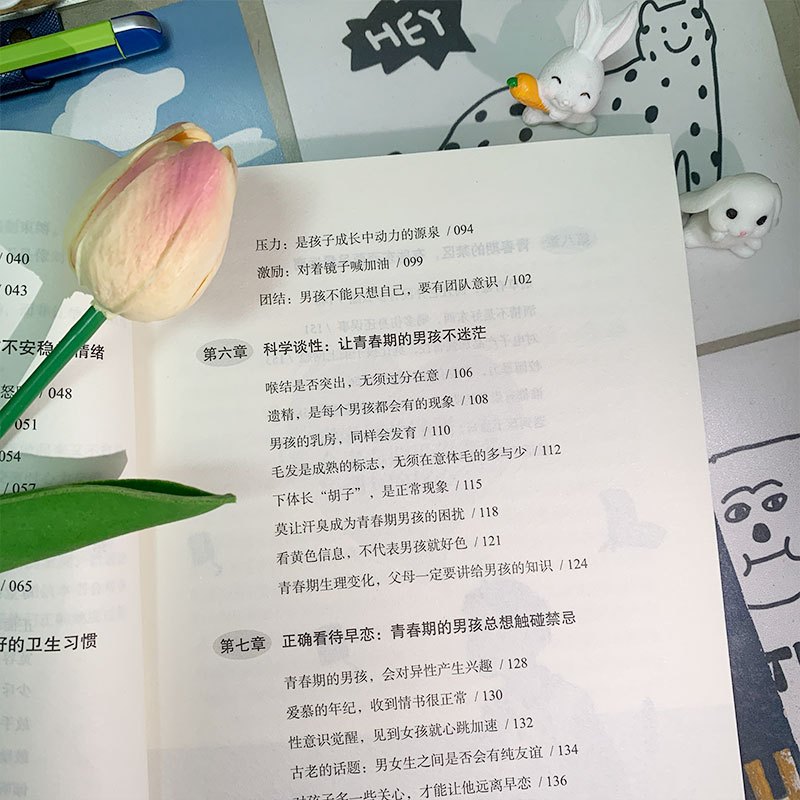 HEY
/ 040
/ 043
不安稳
情绪
/ 048
051
054
/ 057
/ 065
好的卫生习惯
压力：是孩子成长中动力的源泉 / 094
激励：对着镜子喊加油 / 099
团结：男孩不能只想自己，要有团队意识 / 102
第六章 科学谈性：让青春期的男孩不迷茫
喉结是否突出，无须过分在意 / 106
遗精，是每个男孩都会有的现象 / 108
男孩的乳房，同样会发育 / 110
毛发是成熟的标志，无须在意体毛的多与少 / 112
下体长“胡子”，是正常现象 / 115
莫让汗臭成为青春期男孩的困扰 / 118
看黄色信息，不代表男孩就好色 / 121
青春期生理变化，父母一定要讲给男孩的知识 / 124
第七章 正确看待早恋：青春期的男孩总想触碰禁忌
青春期的男孩，会对异性产生兴趣 / 128
爱慕的年纪，收到情书很正常 / 130
性意识觉醒，见到女孩就心跳加速 / 132
古老的话题：男女生之间是否会有纯友谊 / 134
对孩子多一些关心，才能让他远离早恋 / 136